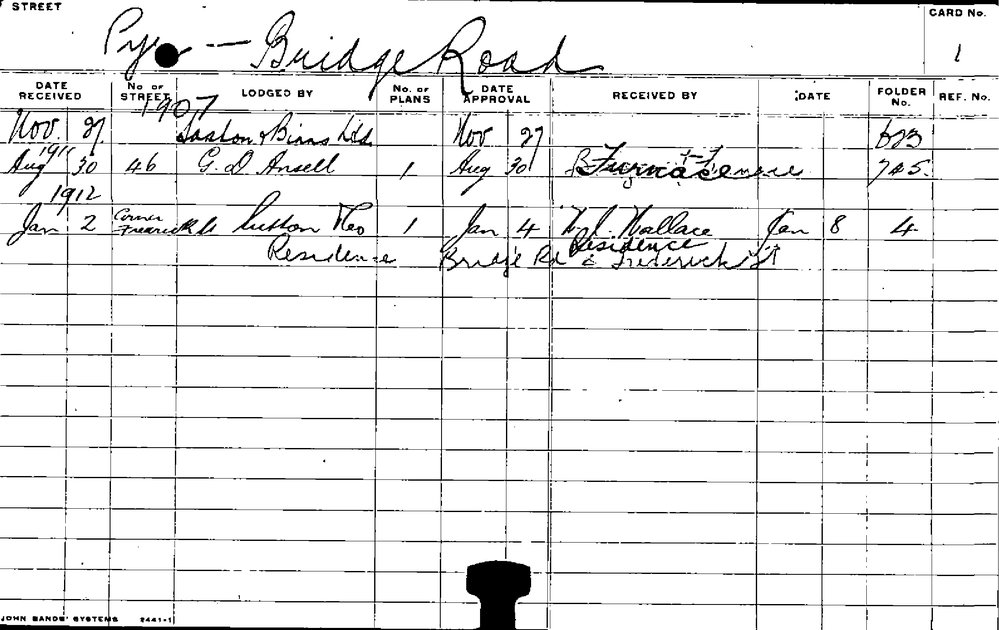 STREET
CARD No.
Bridge Road
1
DATE RECEIVED No. OF STREET LODGED BY No. OF PLANS DATE APPROVAL RECEIVED BY DATE FOLDER No. REF. No.
1907
Nov. 27. & Binns Ltd. Nov 27
1911
Aug 30 46 G. D. Ansell 1 Aug 30 Furnace 745.
1912
Jan 2 Corner Frederick St Sutton 1 Jan 4 Wallace Jan 8 4
Residence
Residence Bridge Rd & Frederick St
JOHN SANDS' SYSTEMS 2441-1